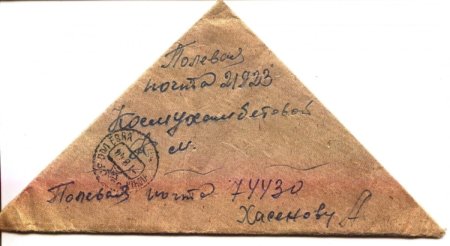 Полевая
почта
Космухамбетовой
м.
Полевая почта 74430
Хасенову А